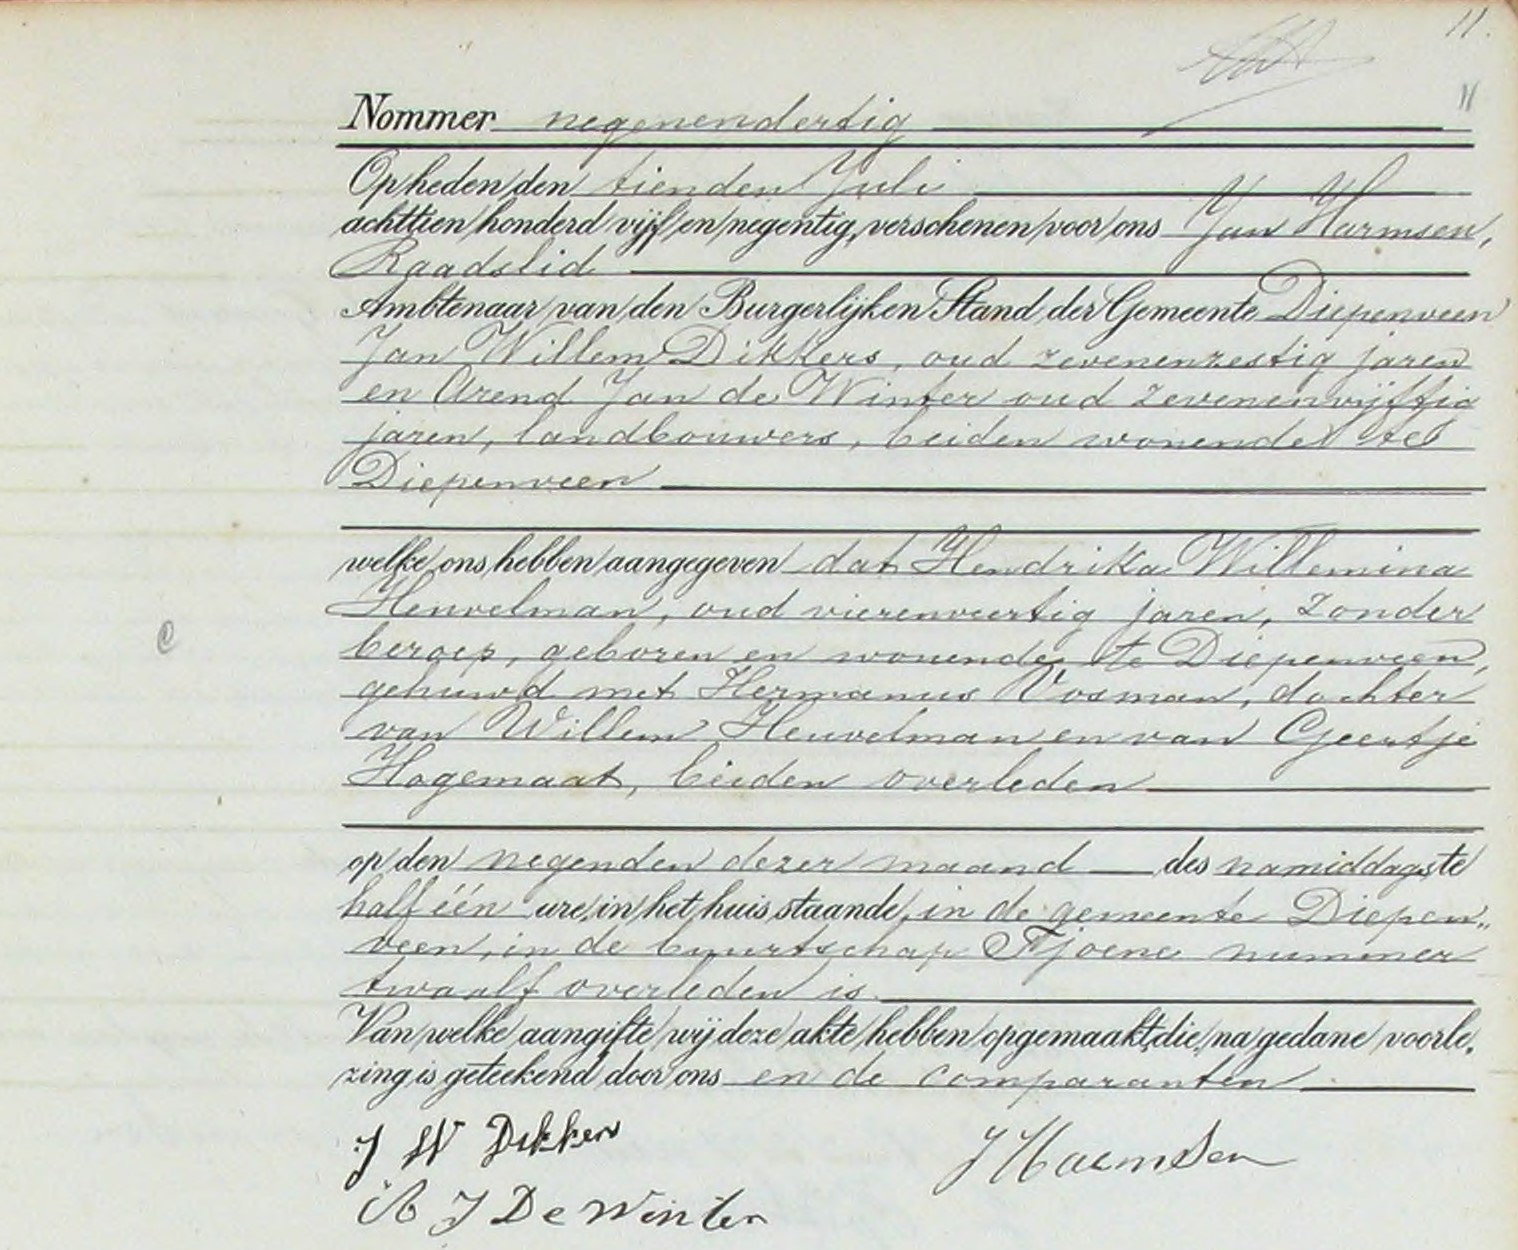 11.
11
Nommer negenendertig
Op heden den tienden Juli
achttien honderd vijf en negentig, verschenen voor ons Jan Harmsen,
Raadslid
Ambtenaar van den Burgerlijken Stand der Gemeente Diepenveen
Jan Willem Dikkers, oud zevenenzestig jaren
en Arend Jan de Winter oud zevenenvijftig
jaren, landbouwers, beiden wonende te
Diepenveen
welke ons hebben aangegeven dat Hendrika Willemina
Heuvelman, oud vierenveertig jaren, zonder
beroep, geboren en wonende te Diepenveen,
gehuwd met Hermanus Vosman, dochter
van Willem Heuvelman en van Geertje
Hagemaat, beiden overleden
op den negenden dezer maand des namiddags te
half één ure, in het huis staande in de gemeente Diepen„
veen, in de buurtschap Tjoene nummer
twaalf overleden is.
Van welke aangifte wij deze akte hebben opgemaakt, die, na gedane voorle-
zing is geteekend door ons en de comparanten
J W Dikkers
J Harmsen
A J De Winter